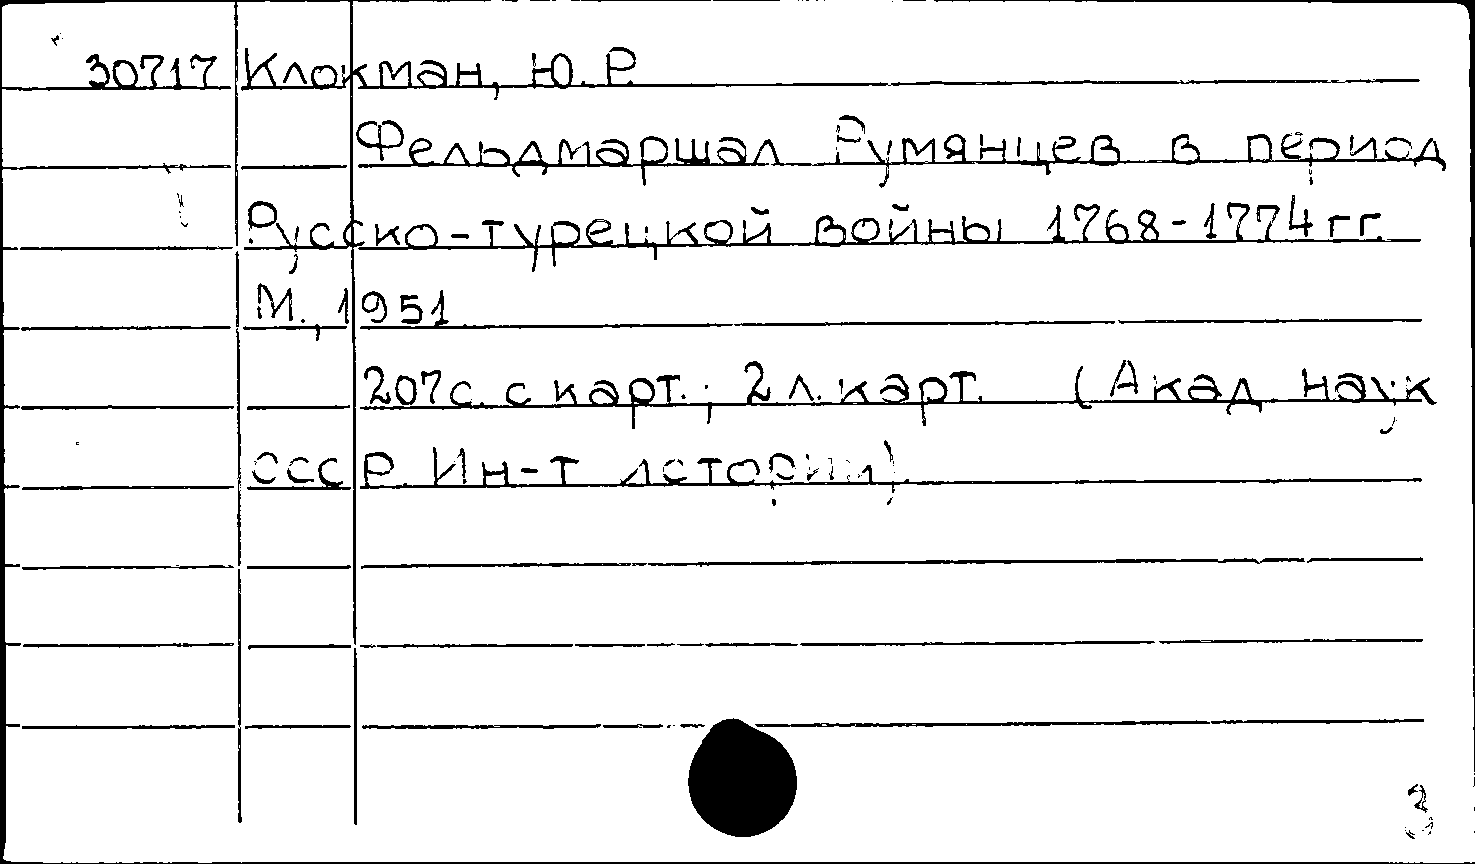 30717 Клокман, Ю.Р.
Фельдмаршал Румянцев в период
Русско-турецкой войны 1768-1774 гг.
М., 1951
207 с. с карт.; 2 л. карт. (Акад. наук
СССР. Ин-т истории).
3